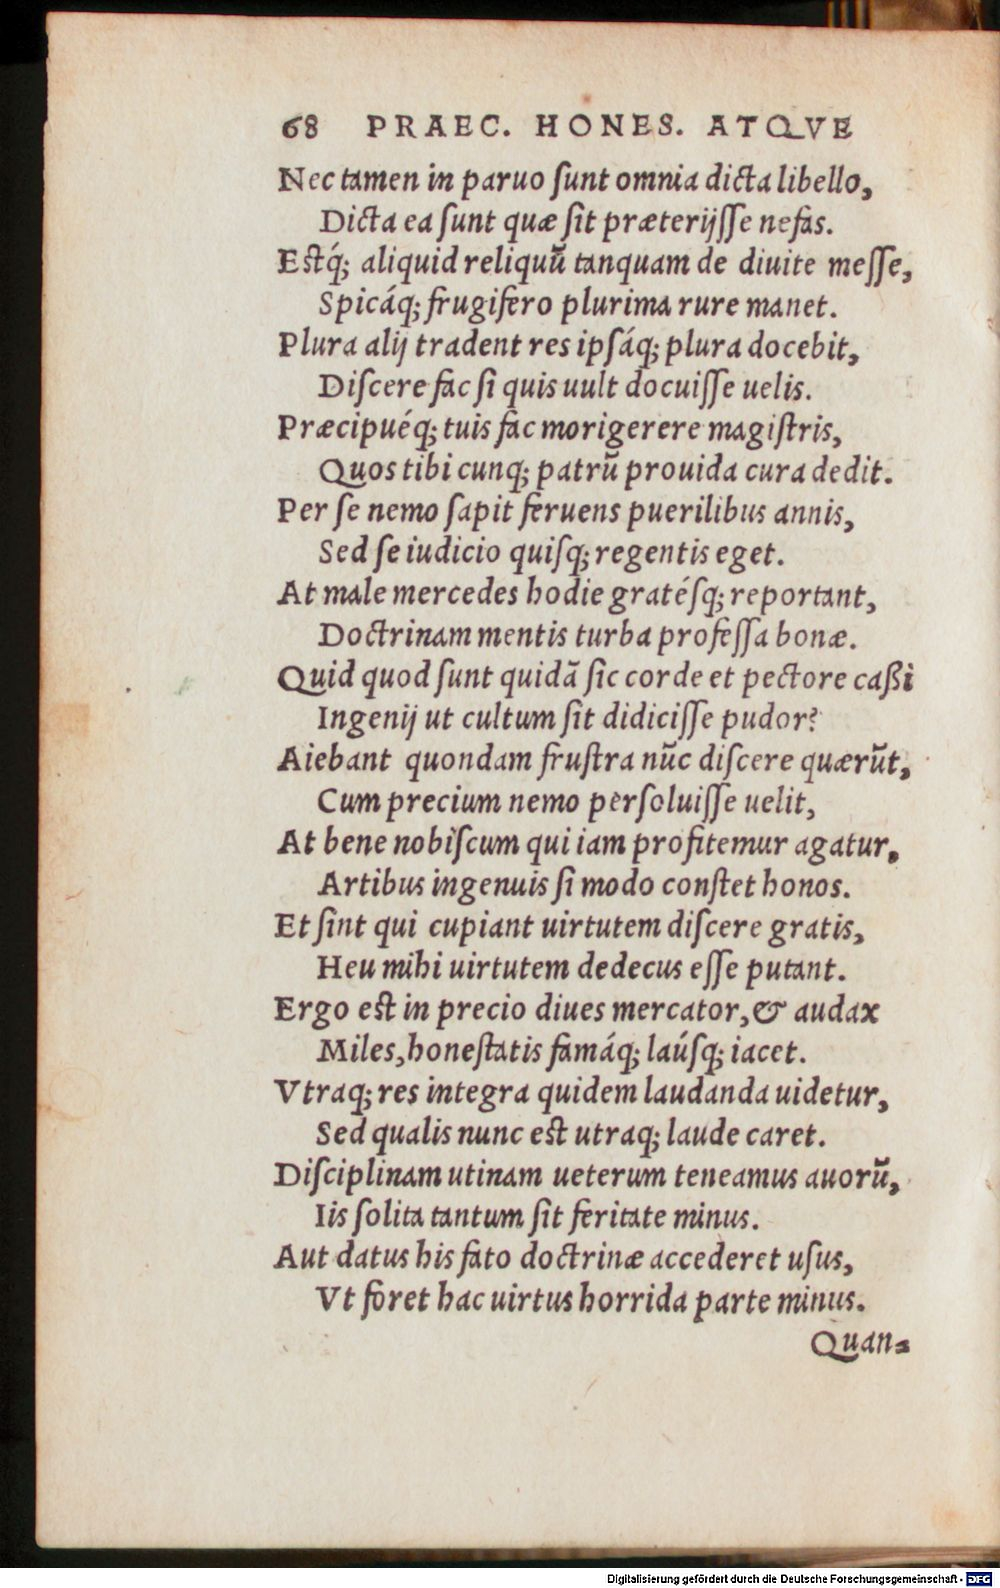 68 PRAEC. HONES. ATQVE
Nec tamen in paruo ſunt omnia dicta libello,
Dicta ea ſunt quæ ſit præterijſſe nefas.
Eſtq́; aliquid reliquũ tanquam de diuite meſſe,
Spicáq; frugifero plurima rure manet.
Plura alij tradent res ipſáq; plura docebit,
Diſcere fac ſi quis uult docuiſſe uelis.
Præcipuéq; tuis fac morigerere magiſtris,
Quos tibi cunq; patrũ prouida cura dedit.
Per ſe nemo ſapit feruens puerilibus annis,
Sed ſe iudicio quiſq; regentis eget.
At male mercedes hodie gratéſq; reportant,
Doctrinam mentis turba profeſſa bonæ.
Quid quod ſunt quidã ſic corde et pectore caßi
Ingenij ut cultum ſit didiciſſe pudor?
Aiebant quondam fruſtra nũc diſcere quærũt,
Cum precium nemo perſoluiſſe uelit,
At bene nobiſcum qui iam profitemur agatur,
Artibus ingenuis ſi modo conſtet honos.
Et ſint qui cupiant uirtutem diſcere gratis,
Heu mihi uirtutem dedecus eſſe putant.
Ergo eſt in precio diues mercator, & audax
Miles, honeſtatis famáq; laúſq; iacet.
Vtraq; res integra quidem laudanda uidetur,
Sed qualis nunc eſt utraq; laude caret.
Diſciplinam utinam ueterum teneamus auorũ,
Iis ſolita tantum ſit feritate minus.
Aut datus his fato doctrinæ accederet uſus,
Vt foret hac uirtus horrida parte minus.
Quan-
Digitalisierung gefördert durch die Deutsche Forschungsgemeinschaft - DFG